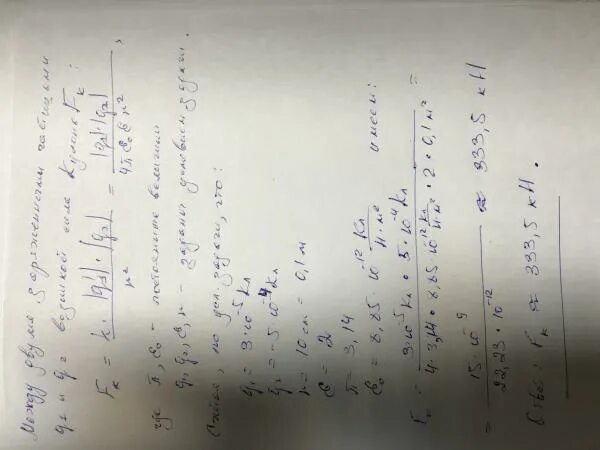 Между двумя заряженными частицами
q₁ и q₂ возникает сила Кулона Fк:
Fк = k · |q₁| · |q₂| / r² = |q₁| · |q₂| / 4πε₀ε r² ,
где π, ε₀ - постоянные величины
q₁, q₂, ε, r - заданы условием задачи.
по усл. задачи, что:
q₁ = 3·10⁻⁵ Кл
q₂ = -5·10⁻⁴ Кл
r = 10 см = 0,1 м
ε = 2
π = 3,14
ε₀ = 8,85·10⁻¹² Кл / Н·м² имеем:
Fк = 3·10⁻⁵ Кл · 5·10⁻⁴ Кл / 4·3,14·8,85·10⁻¹² Кл / Н·м² · 2 · 0,1 м² =
= 15·10⁻⁹ / 22,23·10⁻¹² ≈ 333,5 кН
Ответ: Fк ≈ 333,5 кН.